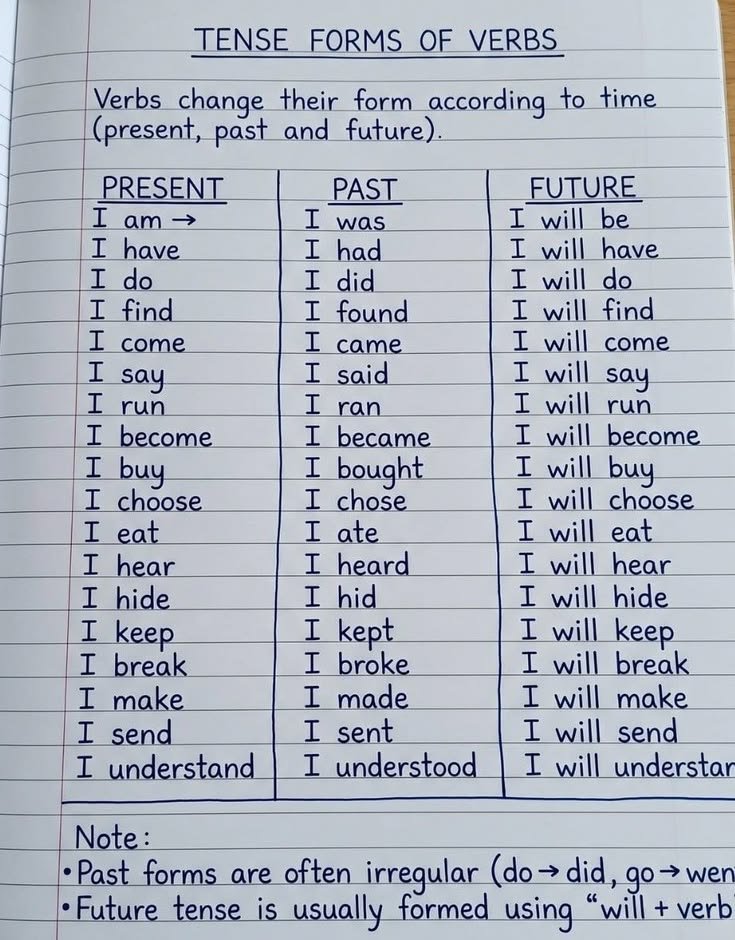 TENSE FORMS OF VERBS
Verbs change their form according to time
(present, past and future).
PRESENT PAST FUTURE
I am → I was I will be
I have I had I will have
I do I did I will do
I find I found I will find
I come I came I will come
I say I said I will say
I run I ran I will run
I become I became I will become
I buy I bought I will buy
I choose I chose I will choose
I eat I ate I will eat
I hear I heard I will hear
I hide I hid I will hide
I keep I kept I will keep
I break I broke I will break
I make I made I will make
I send I sent I will send
I understand I understood I will understan
Note:
•Past forms are often irregular (do→did, go→wen
•Future tense is usually formed using “will + verb